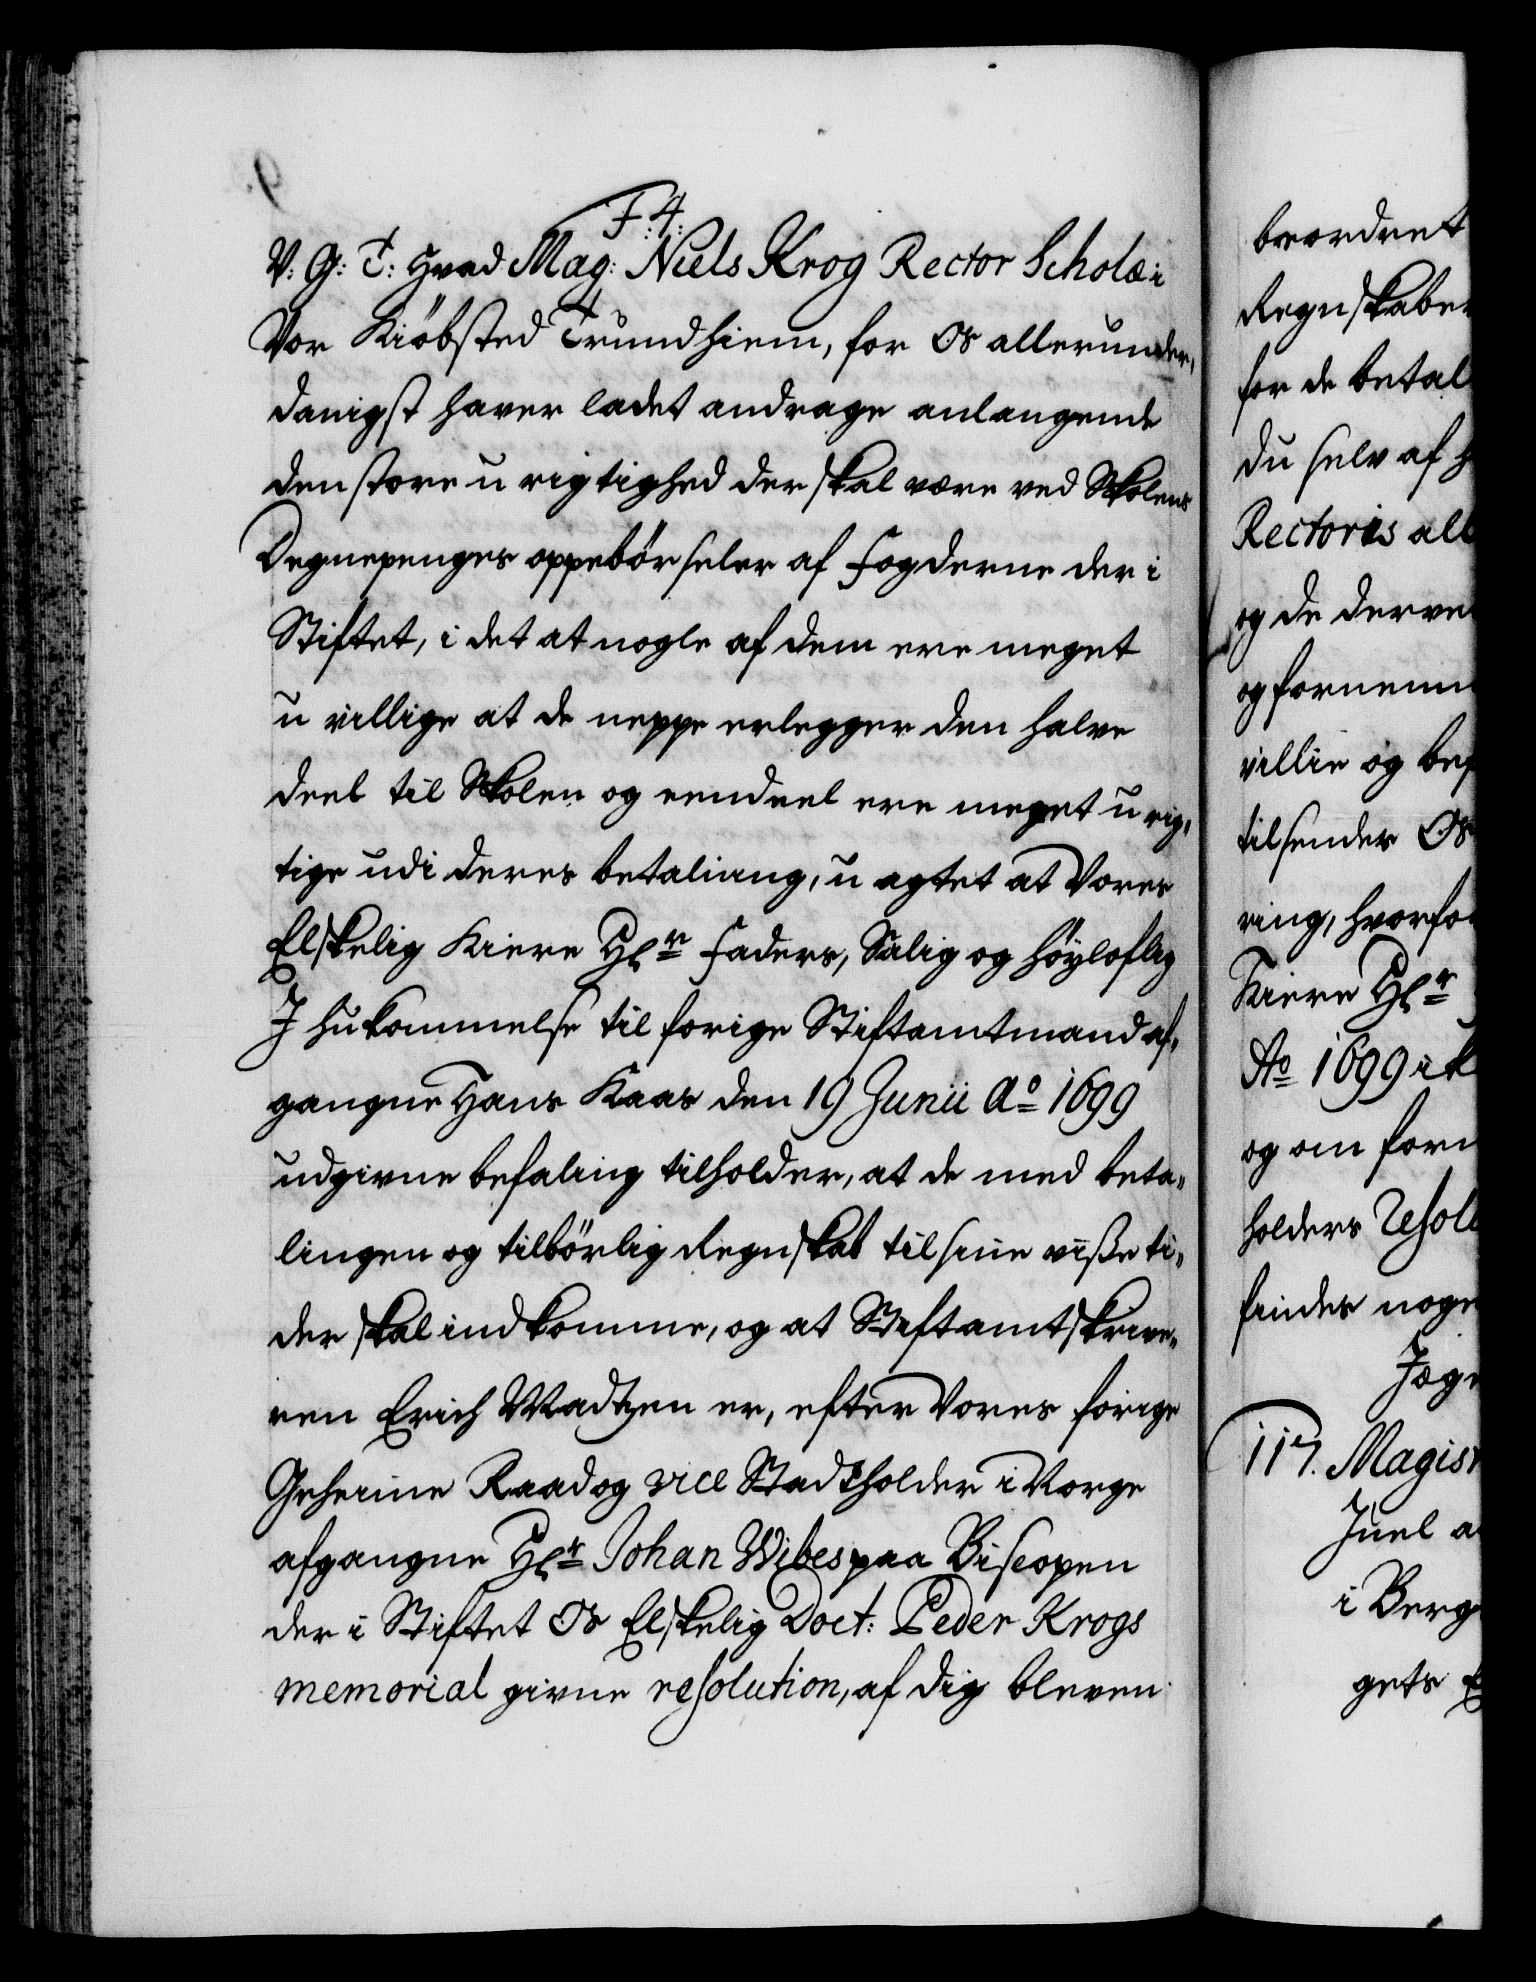 F:4:
V: G: T: Hvad Mag: Niels Krog Rector Scholæ i
Vor Kiöbsted Trundhiem, for Os allerunder,
danigst haver ladet andrage anlangende
den store u rigtighed der skal være ved Skolens
Degnepenges oppebörseler af Fogderne der i
Stiftet, i det at nogle af dem ere meget
u villige at de neppe erlegger den halve
deel til Skolen og eendeel ere meget u rig,
tige udi deres betaliang, u agtet at Vores
Elskelig Kiere Hr Faders, Salig og höyloflig
Ihukommelse til forige Stiftamtmand af,
gangne Hans Kaas den 19 Junii Ao 1699
udgivne befaling tilholder, at de med beta,
lingen og tilbörlig Regnskab til sine visse ti,
der skal indkomme, og at Stiftamtskrive,
ren Erich Madtzen er, efter Vores forige
Geheime Raad og vice Stadtholder i Norge
afgangne Hr Johan Wibes paa Biscopen
der i Stiftet Os Elskelig Doct: Peder Krogs
memorial givne resolution, af dig bleven
beordret
Regnskaber
for de betal
du selv af h
Rectoris all
og de derve
og fornemm
villie og bef
tilsender Os
ring, hvorfor
Kiere Hr
Ao 1699 i k
og om forn
holders Resol
findes noge
Jæge
117. Magist
Juel a
i Berg
gets E